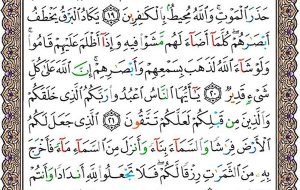 حَذَرَ ٱلْمَوْتِ وَٱللَّهُ مُحِيطٌۢ بِٱلْكَٰفِرِينَ ١٩ يَكَادُ ٱلْبَرْقُ يَخْطَفُ
أَبْصَٰرَهُمْ كُلَّمَآ أَضَآءَ لَهُم مَّشَوْا۟ فِيهِ وَإِذَآ أَظْلَمَ عَلَيْهِمْ قَامُوا۟
وَلَوْ شَآءَ ٱللَّهُ لَذَهَبَ بِسَمْعِهِمْ وَأَبْصَٰرِهِمْ إِنَّ ٱللَّهَ عَلَىٰ كُلِّ
شَىْءٍ قَدِيرٌ ٢٠ يَٰٓأَيُّهَا ٱلنَّاسُ ٱعْبُدُوا۟ رَبَّكُمُ ٱلَّذِى خَلَقَكُمْ
وَٱلَّذِينَ مِن قَبْلِكُمْ لَعَلَّكُمْ تَتَّقُونَ ٢١ ٱلَّذِى جَعَلَ لَكُمُ
ٱلْأَرْضَ فِرَٰشًا وَٱلسَّمَآءَ بِنَآءً وَأَنزَلَ مِنَ ٱلسَّمَآءِ مَآءً فَأَخْرَجَ
بِهِۦ مِنَ ٱلثَّمَرَٰتِ رِزْقًا لَّكُمْ فَلَا تَجْعَلُوا۟ لِلَّهِ أَندَادًا وَأَنتُمْ